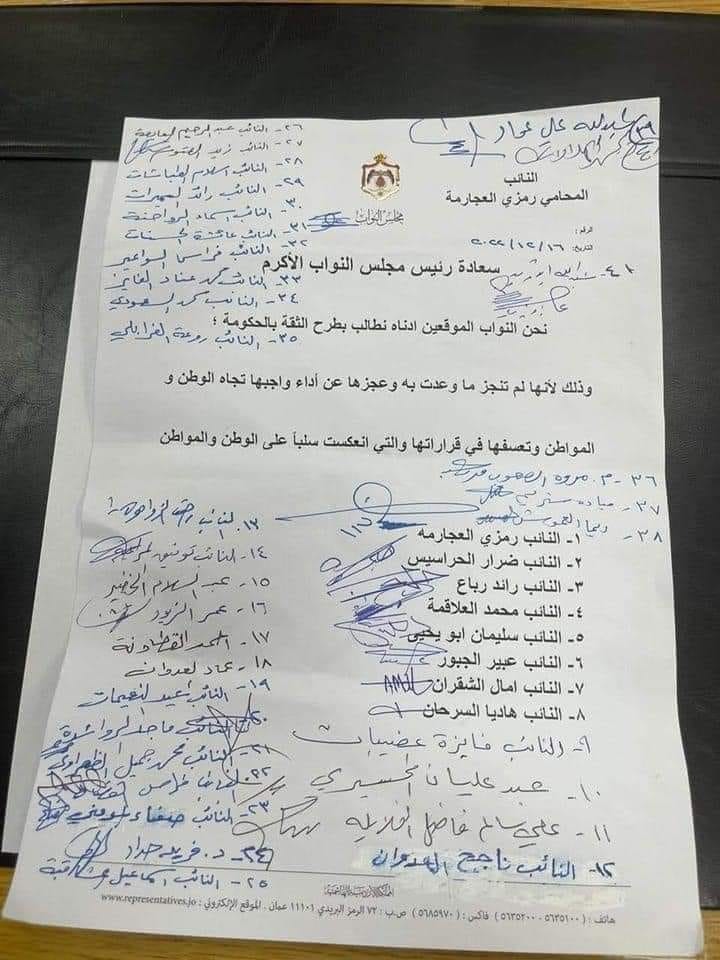 ٢٦- النائب عبد الرحيم المعايعة
٢٧- النائب زيد العتوم
٢٨- النائب اسلام الطباشات
٢٩- النائب رائد السميرات
٣٠- النائب اسماء الرواحنة
٣١- النائب عائشة الحسنات
٣٢- النائب فراس السواعير
٣٣- النائب محمد عناد الفايز
٣٤- النائب محمد السعودي
٣٥- النائب روعة الغرابلي
النائب
المحامي رمزي العجارمة
مجلس النواب
الرقم:
التاريخ: ٢٠٢٢/١٢/١٦
٤١-
سعادة رئيس مجلس النواب الأكرم
نحن النواب الموقعين ادناه نطالب بطرح الثقة بالحكومة ؛
وذلك لأنها لم تنجز ما وعدت به وعجزها عن أداء واجبها تجاه الوطن و
المواطن وتعسفها في قراراتها والتي انعكست سلباً على الوطن والمواطن
٣٦- م. مروه الصعوب
٣٧- ميادة شريم
٣٨- ريما العموش
١- النائب رمزي العجارمه
٢- النائب ضرار الحراسيس
٣- النائب رائد رباع
٤- النائب محمد العلاقمة
٥- النائب سليمان ابو يحيى
٦- النائب عبير الجبور
٧- النائب امال الشقران
٨- النائب هاديا السرحان
٩- النائب فايزة عضيبات
١٠- عبد عليان المحسيري
١١- علي سالم فاضل الغلايله
١٢- النائب ناجح العدوان
١٣- النائب
١٤- النائب
١٥- عبد السلام الخضير
١٦- عمر الزيود
١٧- احمد القطاونة
١٨- عماد العدوان
١٩- النائب عيد النعيمات
٢٠- النائب ماجد الرواشدة
٢١- النائب محمد جميل الظهراوي
٢٢- النائب فراس
٢٣- النائب صفاء المومني
٢٤- د. فريد حداد
٢٥- النائب اسماعيل المشاقبة
المملكة الأردنية الهاشمية
هاتف : ( ٥٦٣٥١٠٠ - ٥٦٣٥٢٠٠ ) فاكس : ( ٥٦٨٥٩٧٠ ) ص.ب : ٧٢ الرمز البريدي ١١١٠١ عمان . الموقع الإلكتروني : www.representatives.jo